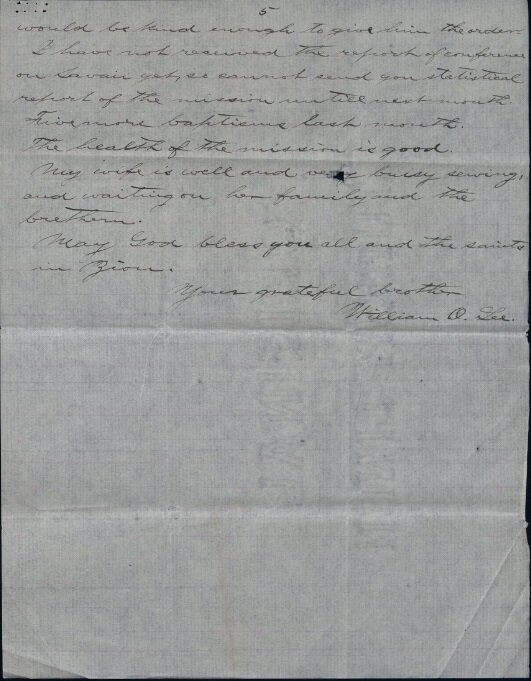 5
would be kind enough to give him the order.
I have not received the report of conference
on Savaii yet, so cannot send you statistical
report of the mission untill next month.
Five more baptisms last month.
The health of the mission is good.
My wife is well and very busy sewing,
and waiting on her family and the
brethern.
May God bless you all and the saints
in Zion.
Your grateful brother
William O. Lee.